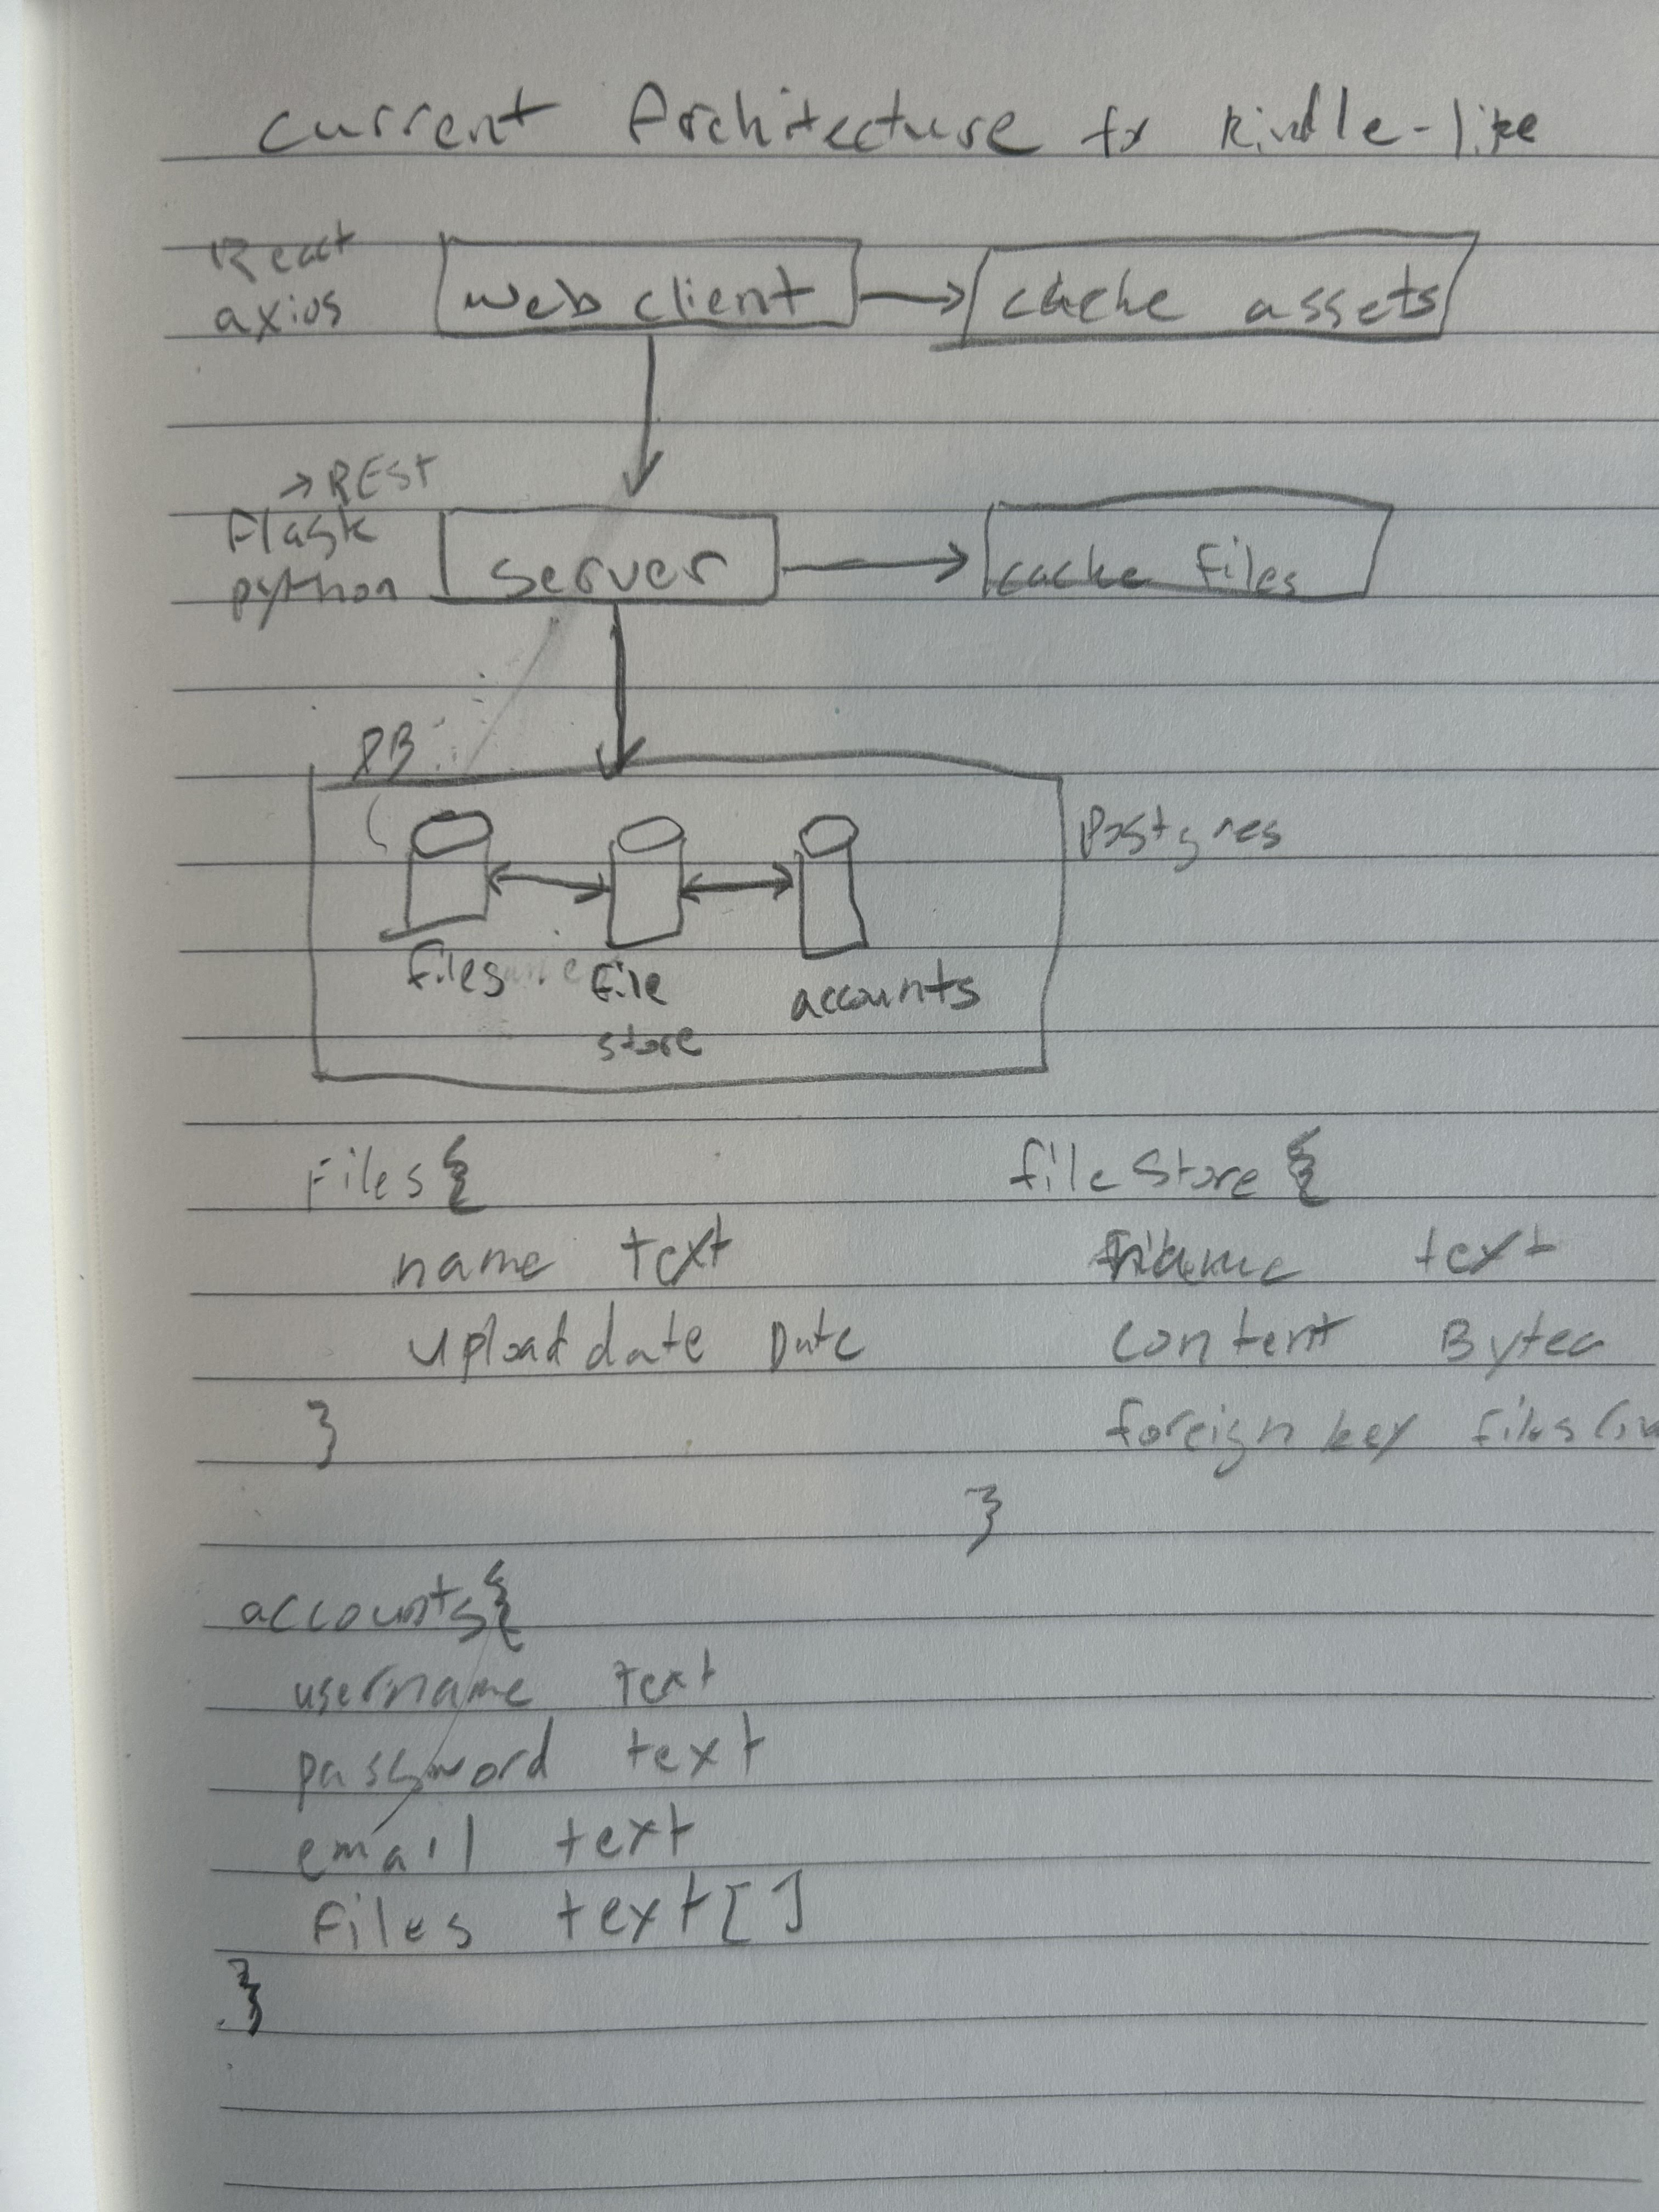 current Architecture for kindle-like
React
axios
web client
cache assets
→ REST
Flask
python
server
cache files
DB
Postgres
files
file
store
accounts
Files {
name text
upload date Date
}
fileStore {
text
content Bytea
foreign key files
}
accounts {
username text
password text
email text
Files text[]
}